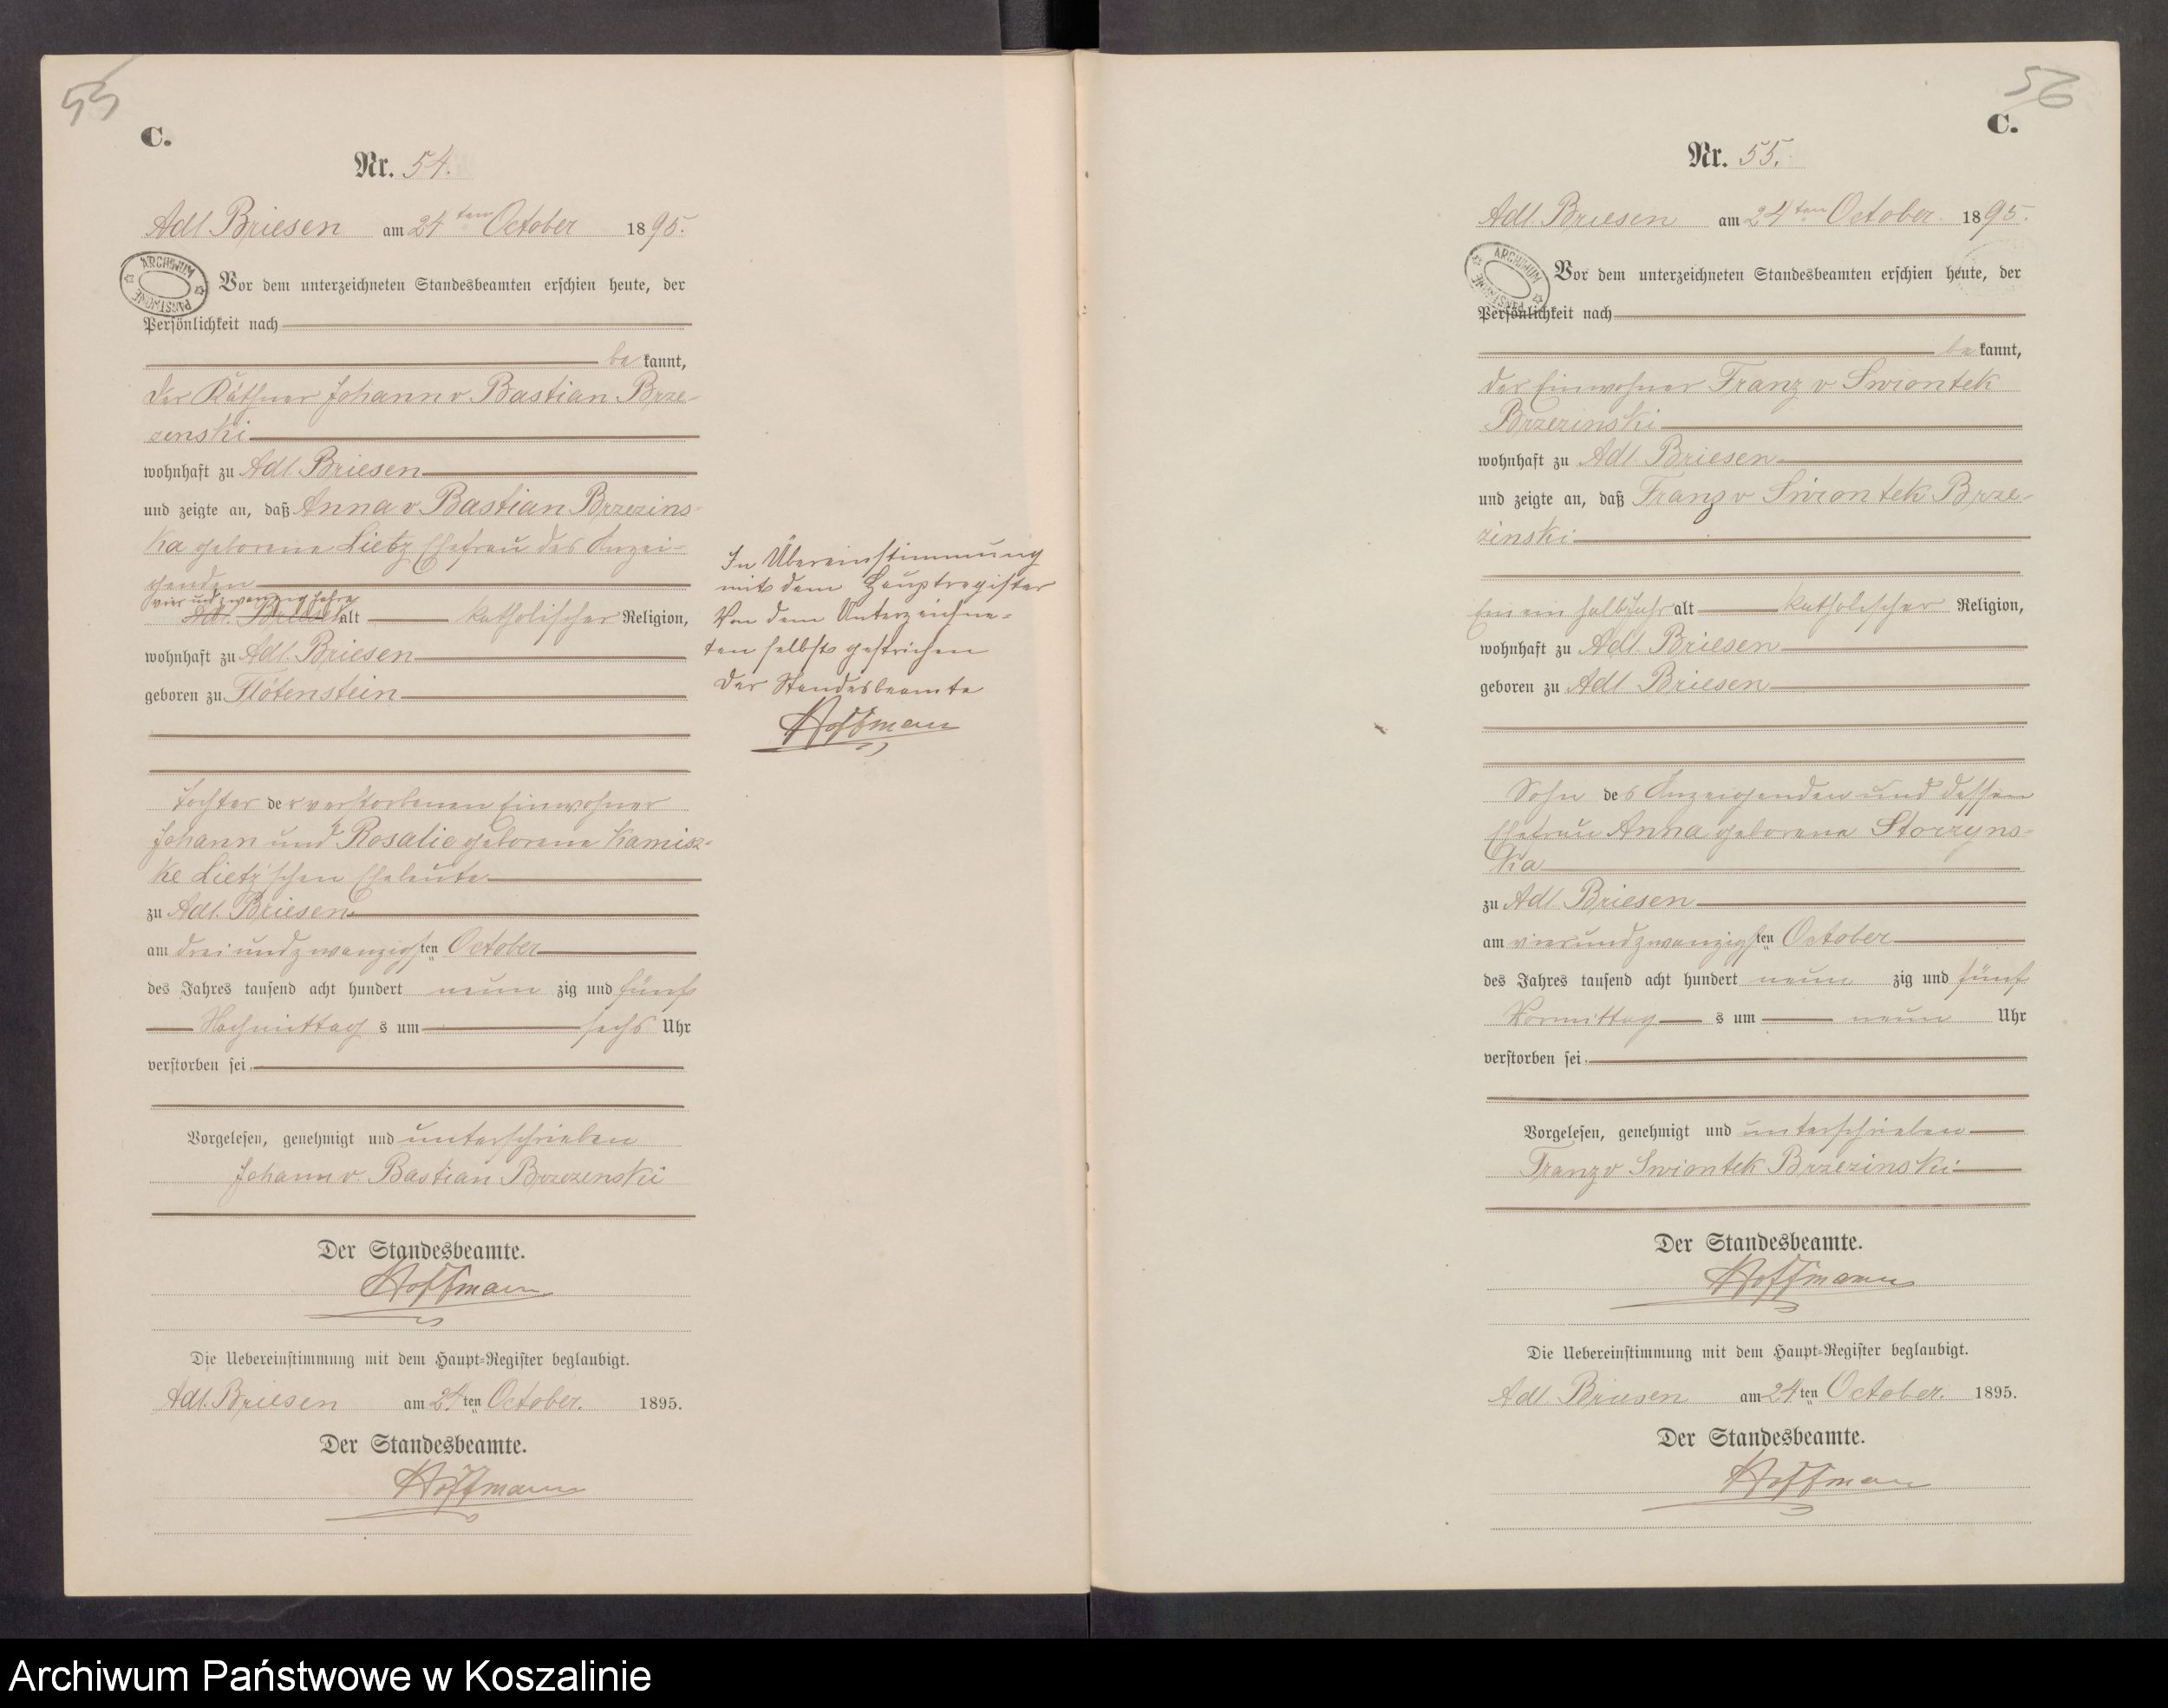 55
C.
Nr. 54.
Adl. Briesen am 24ten October 1895.
ARCHIWUM PAŃSTWOWE
Vor dem unterzeichneten Standesbeamten erschien heute, der
Persönlichkeit nach
be kannt,
der Käthner Johann v. Bastian Brze-
zenski
wohnhaft zu Adl. Briesen
und zeigte an, daß Anna v. Bastian Brzezins-
ka geborene Lietz Ehefrau des Anzei-
genden
vier und zwanzig Jahre
Adl. Briesen alt katholischer Religion,
wohnhaft zu Adl. Briesen
geboren zu Flötenstein
Tochter der verstorbenen Einwohner
Johann und Rosalie geborene Kamisz-
ke Lietz'schen Eheleute
zu Adl. Briesen
am drei und zwanzigsten October
des Jahres tausend acht hundert neun zig und fünf
Nachmittag s um sechs Uhr
verstorben sei.
Vorgelesen, genehmigt und unterschrieben
Johann v. Bastian Brzezenski
Der Standesbeamte.
Hoffmann
Die Uebereinstimmung mit dem Haupt-Register beglaubigt.
Adl. Briesen am 24ten October. 1895.
Der Standesbeamte.
Hoffmann
In Übereinstimmung
mit dem Hauptregister
Von dem Unterzeichne-
ten selbst gestrichen
Der Standesbeamte
Hoffmann
56
C.
Nr. 55.
Adl. Briesen am 24ten October. 1895.
ARCHIWUM PAŃSTWOWE
Vor dem unterzeichneten Standesbeamten erschien heute, der
Persönlichkeit nach
be kannt,
der Einwohner Franz v Swiontek
Brzezinski
wohnhaft zu Adl Briesen
und zeigte an, daß Franz v Swiontek Brze-
zinski
Ein ein halb Jahr alt katholischer Religion,
wohnhaft zu Adl. Briesen
geboren zu Adl Briesen
Sohn des Anzeigenden und dessen
Ehefrau Anna geborene Storzyns-
ka
zu Adl Briesen
am vierundzwanzigsten October
des Jahres tausend acht hundert neun zig und fünf
Vormittag s um neun Uhr
verstorben sei.
Vorgelesen, genehmigt und unterschrieben
Franz v Swiontek Brzezinski
Der Standesbeamte.
Hoffmann
Die Uebereinstimmung mit dem Haupt-Register beglaubigt.
Adl. Briesen am 24ten October. 1895.
Der Standesbeamte.
Hoffmann
Archiwum Państwowe w Koszalinie